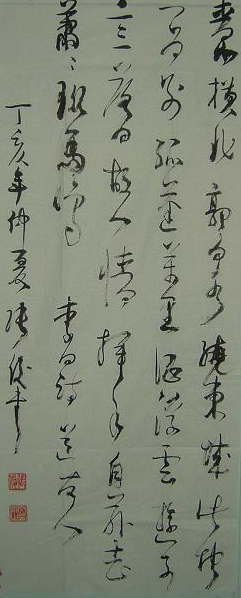 青山横北郭白水繞東城此地
一为别孤蓬萬里征浮雲遊子
意落日故人情揮手自兹去
蕭〻班馬鳴 李白詩送友人
丁亥年仲夏